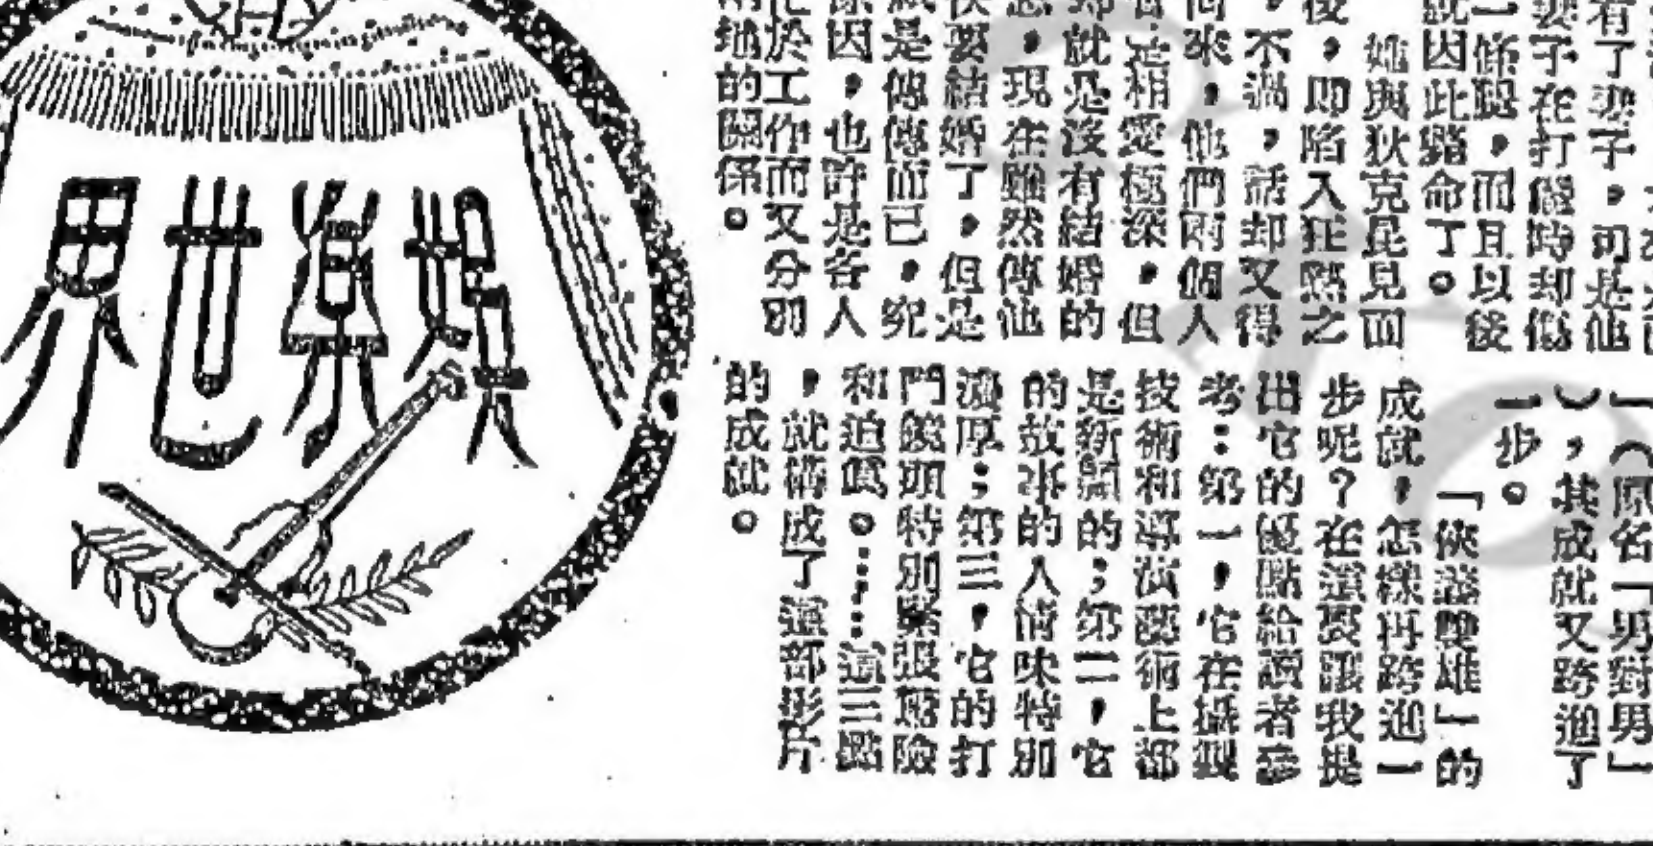 有了妻子，可是他
妻子在打獵時却傷
一條腿，而且以後
就因此命了。
她與狄克昆見面
後，即陷入狂熱之
，不過，話却又得
回來，他們兩個人
是相愛極深，但
却就是沒有結婚的
，現在雖然傳他
快要結婚了，但是
是傳傳而已，究
原因，也許是各人
忙於工作而又分別
兩地的關係。
（原名「男對男」
），其成就又跨進了
一步。
「俠盜雙雄」的
成就，怎樣再跨進一
步呢？在這裏讓我提
出它的優點給讀者參
考：第一，它在攝製
技術和導演藝術上都
是新闢的；第二，它
的故事的人情味特別
濃厚；第三，它的打
鬥鏡頭特別緊張驚險
和迫真。……這三點
，就構成了這部影片
的成就。
娛樂世界